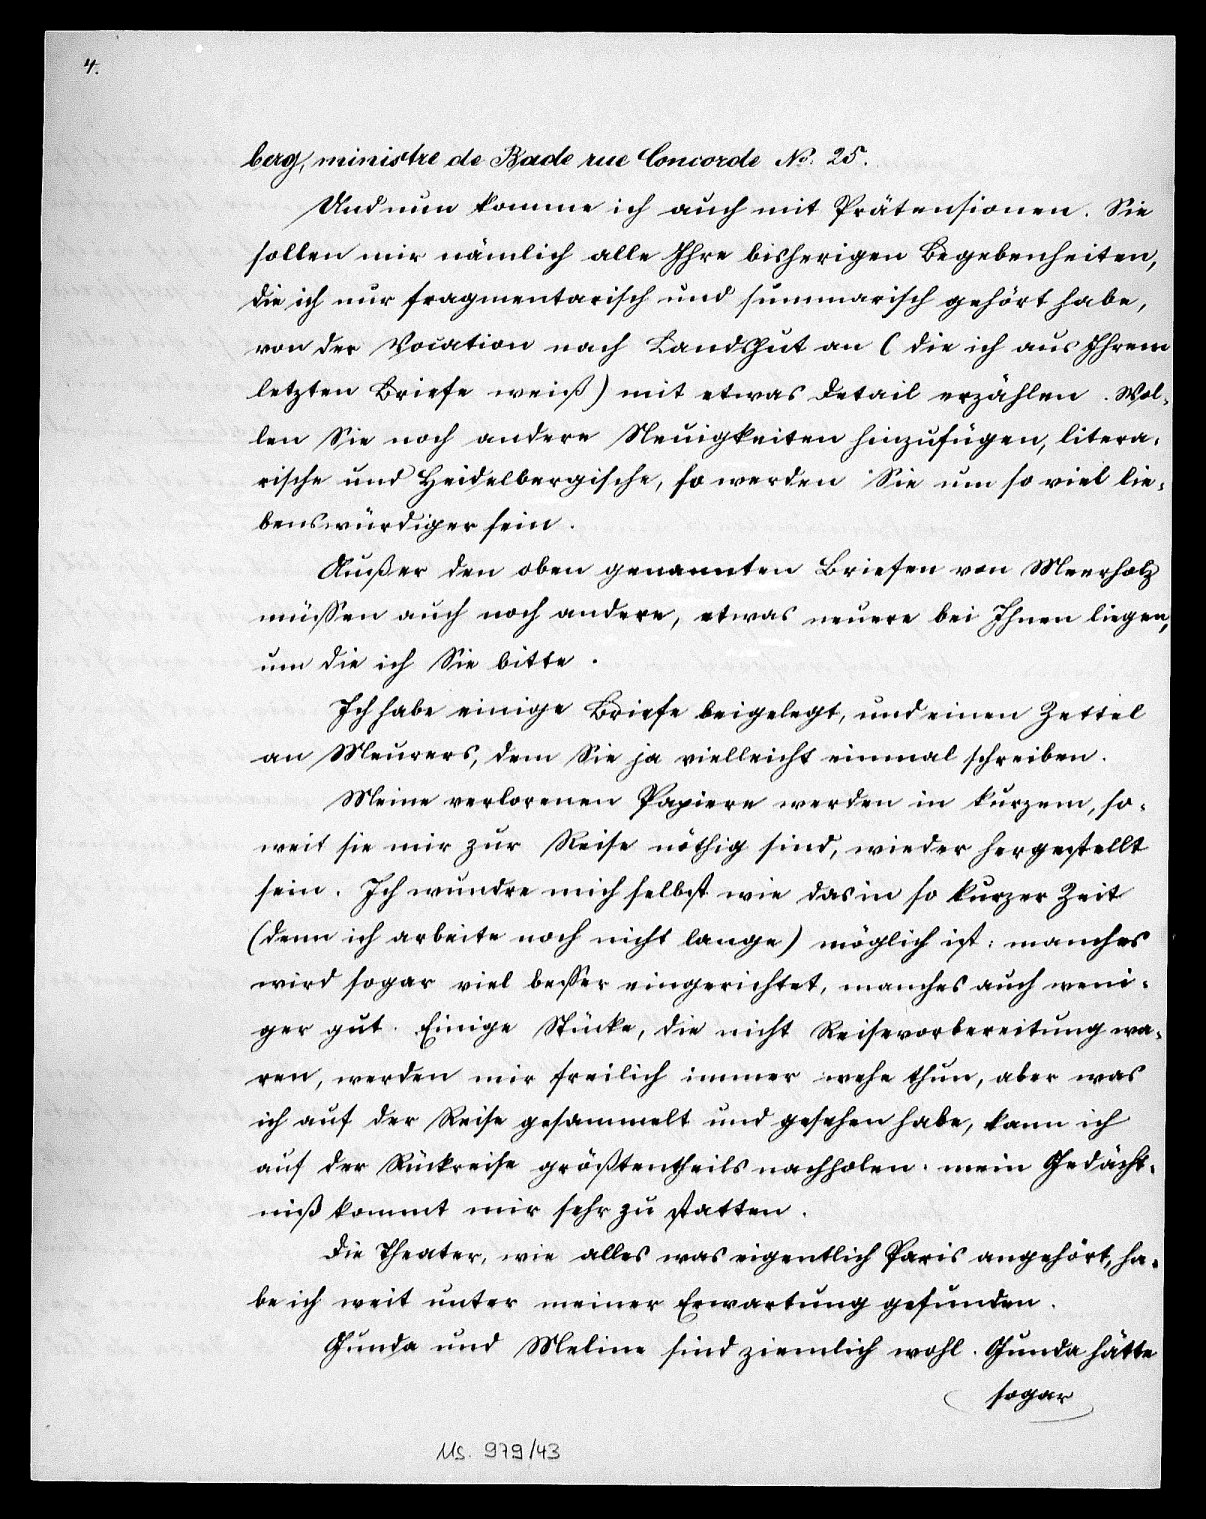 4.
berg, ministre de Bade rue Concorde No. 25.
Und nun komme ich auch mit Prätensionen. Sie
sollen mir nämlich alle Ihre bisherigen Begebenheiten,
die ich nur fragmentarisch und summarisch gehört habe,
von der Vocation nach Landshut an (die ich aus Ihrem
letzten Briefe weiß) mit etwas Detail erzählen. Wol-
len Sie noch andere Neuigkeiten hinzufügen, litera-
rische und Heidelbergische, so werden Sie um so viel lie-
benswürdiger sein.
Außer den oben genannten Briefen von Meerholz
müssen auch noch andere, etwas neuere bei Ihnen liegen,
um die ich Sie bitte.
Ich habe einige Briefe beigelegt, und einen Zettel
an Meurers, dem Sie ja vielleicht einmal schreiben.
Meine verlorenen Papiere werden in kurzem, so-
weit sie mir zur Reise nöthig sind, wieder hergestellt
sein. Ich wundre mich selbst wie das in so kurzer Zeit
(denn ich arbeite noch nicht lange) möglich ist: manches
wird sogar viel besser eingerichtet, manches auch weni-
ger gut. Einige Stücke, die nicht Reisevorbereitung wa-
ren, werden mir freilich immer wehe thun, aber was
ich auf der Reise gesammelt und gesehen habe, kann ich
auf der Rückreise größtentheils nachholen. mein Gedächt-
niß kommt mir sehr zu statten.
Die Theater, wie alles was eigentlich Paris angehört, ha-
be ich weit unter meiner Erwartung gefunden.
Gunda und Meline sind ziemlich wohl. Gunda hätte
sogar
Ms. 979/43